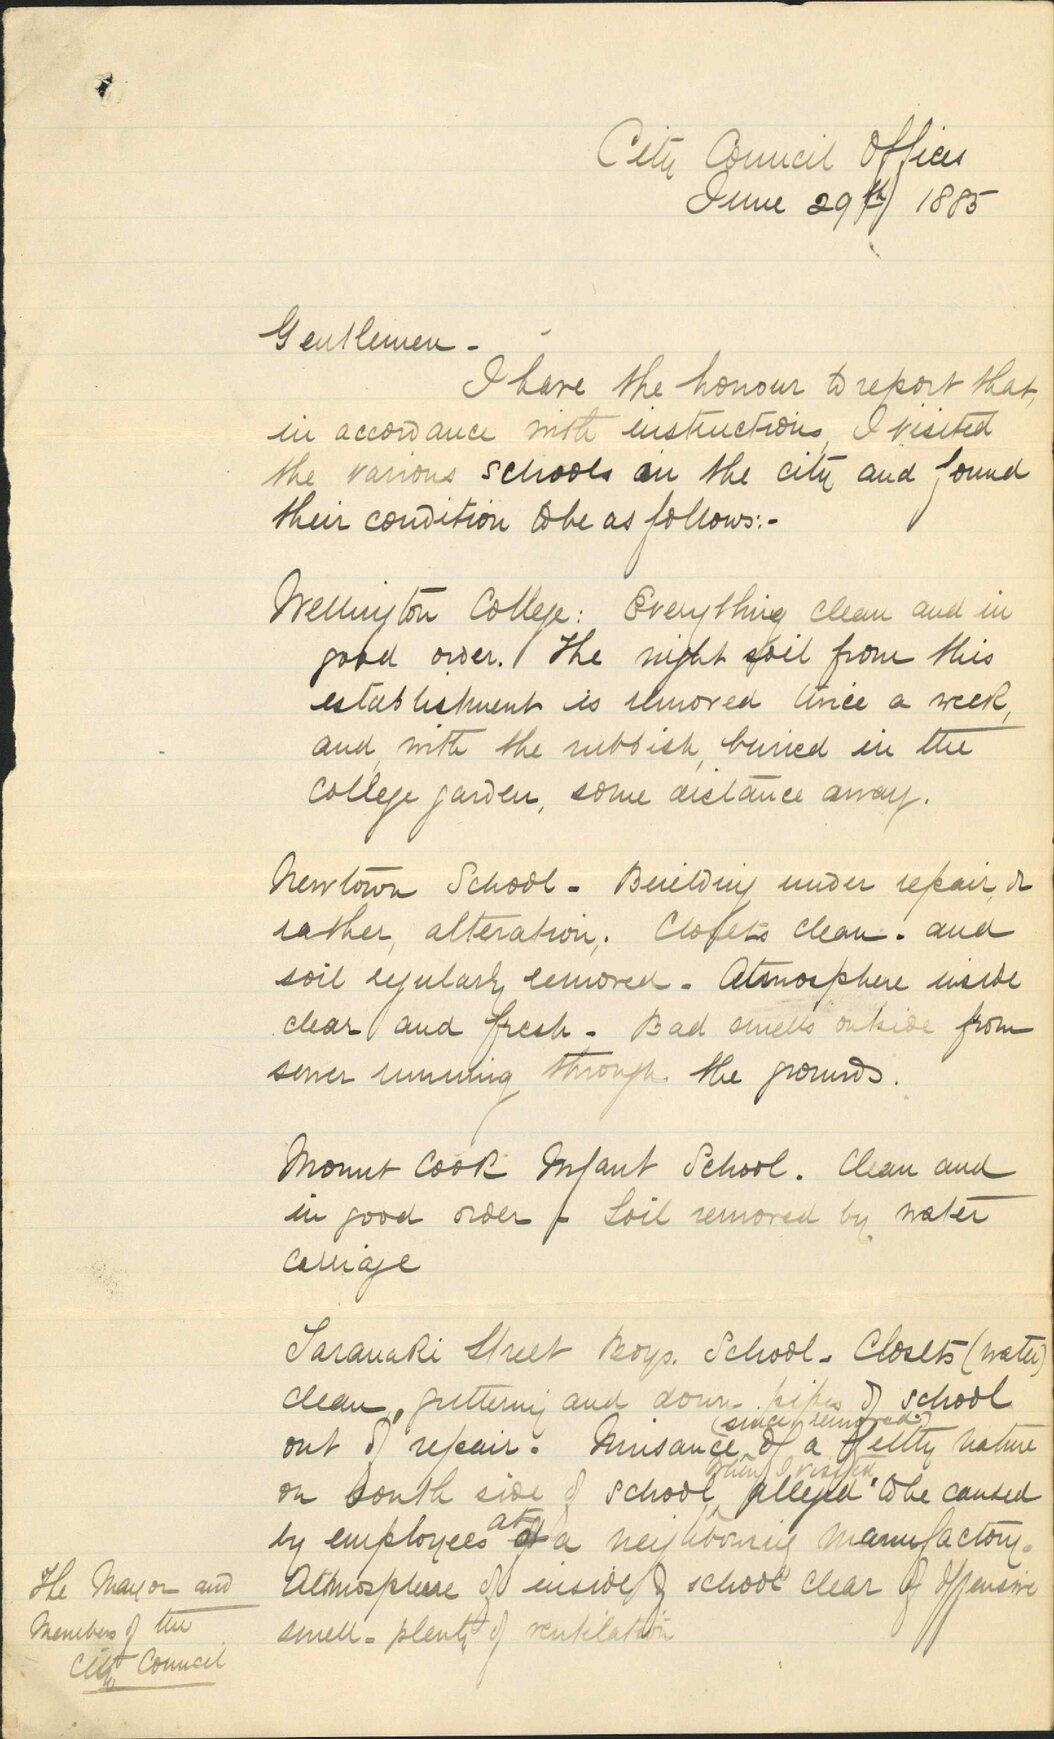 City Council Offices
June 29th/ 1885
Gentlemen -
I have the honour to report that,
in accordance with instructions, I visited
the various schools in the city and found
their condition to be as follows:-
Wellington College: Everything clean and in
good order. The night soil from this
establishment is removed twice a week,
and, with the rubbish, buried in the
College garden, some distance away.
Newtown School - Building under repair, or
rather, alteration. Closets clean. and
soil regularly removed - Atmosphere inside
clear and fresh - Bad smells outside from
sewer running through the grounds.
Mount Cook Infant School. Clean and
in good order - Soil removed by water
carriage
Taranaki Street Boys. School - Closets (water)
clean, guttering and down-pipes of school
(since removed)
out of repair. Nuisance of a filthy nature
when I visited
on South side of school, alleged to be caused
by employees at a neighbouring manufactory.
Atmosphere of inside of school clear of offensive
smell - plenty of ventilation
The Mayor and
Members of the
City Council